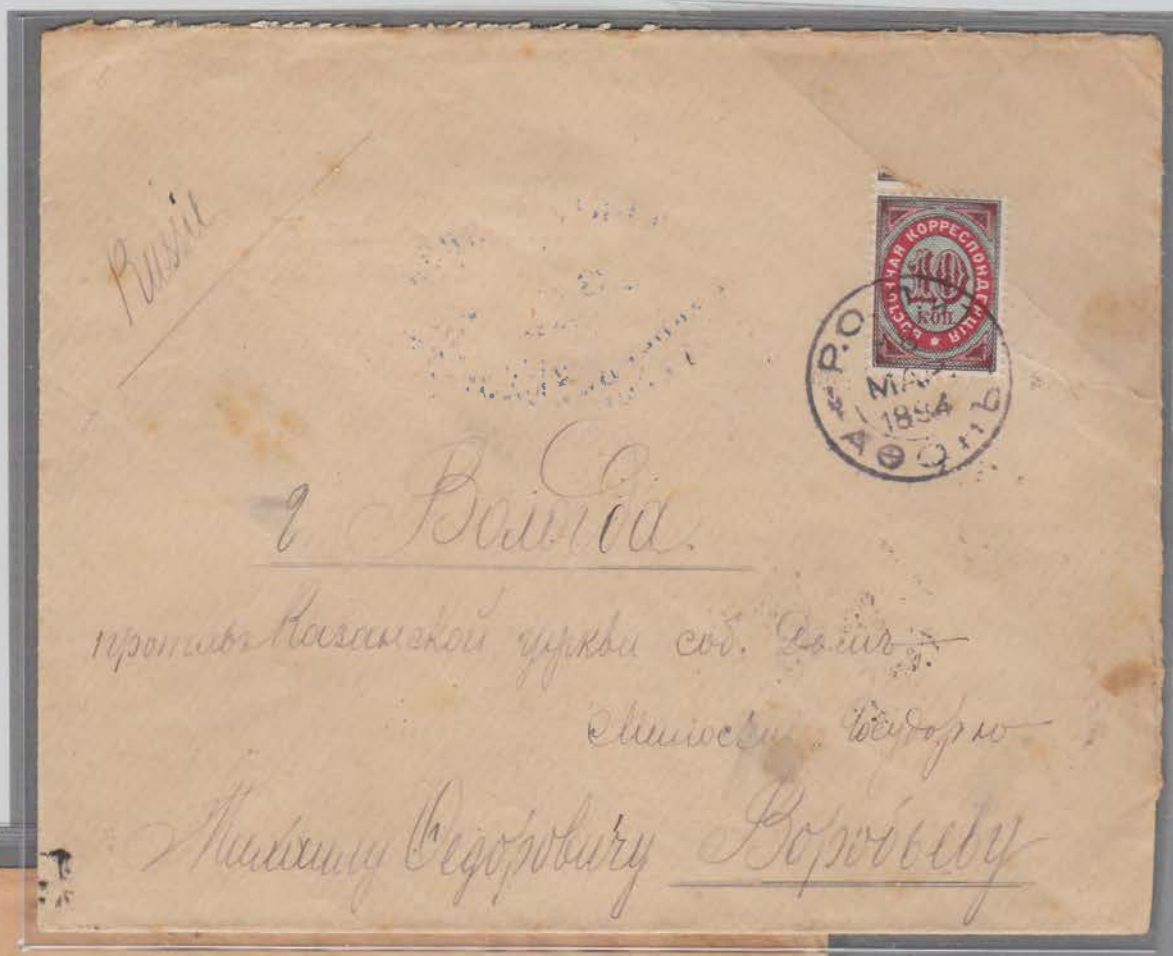 Russie
ВОСТОЧНАЯ КОРРЕСПОНДЕНЦІЯ
10
коп.
Р.О.
МАЯ
1894
АѲОНЪ
г Вологда.
противъ Казанской церкви соб. Домъ
Милостив. Государю
Михаилу Федоровичу Воробьеву